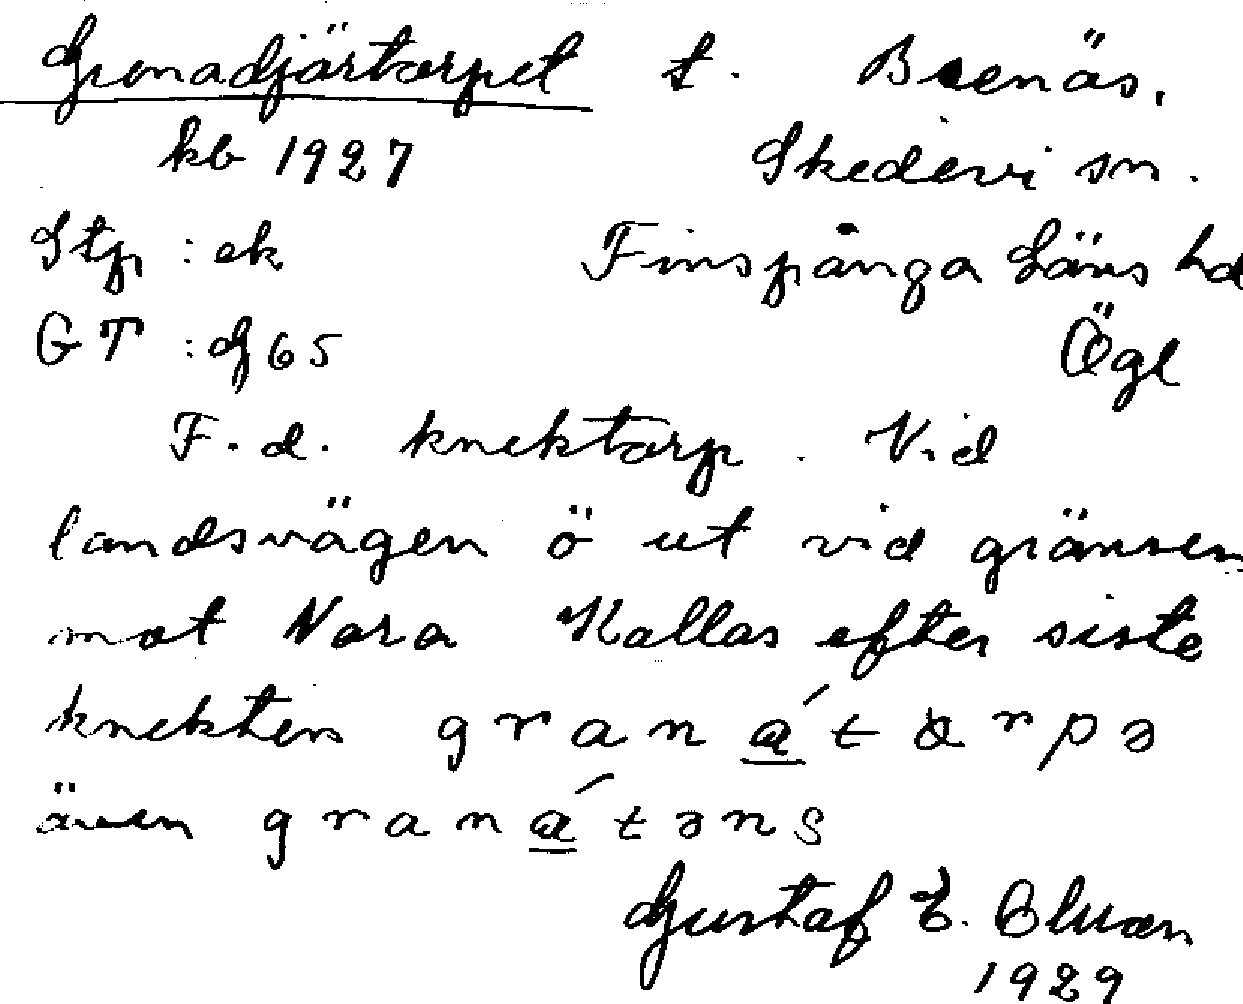 Grenadjärtorpet t. Brenäs.
kb 1927 Skedevi sn.
Stp : ek Finspånga Läns hd
GT : df 65 Ögl
F. d. knektorp. Vid
landsvägen ö ut vid gränsen
mot Nora Kallas efter siste
knekten granátɑrpə
även granátəns
Gustaf E.
1929